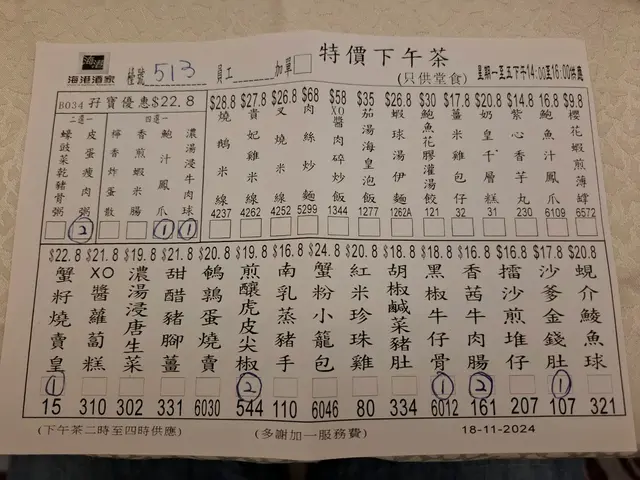 海港酒家
檯號 513
員工
加單
特價下午茶
(只供堂食)
星期一至五下午14:00至16:00供應
B034 孖寶優惠$22.8
二選一
蠔豉菜乾豬骨粥
皮蛋瘦肉粥 2
四選二
檸香炸蛋散
香煎蝦米腸
鮑汁鳳爪 1
濃湯浸牛肉球 1
$28.8 燒鵝米線 4237
$27.8 貴妃雞米線 4262
$26.8 叉燒米線 4252
$68 肉絲炒麵 5299
$58 XO醬肉碎炒飯 1344
$35 茄湯海皇泡飯 1277
$26.8 蝦球湯伊麵 1262A
$30 鮑魚花膠灌湯餃 121
$17.8 薑米雞包仔 32
$20.8 奶皇千層糕 31
$14.8 紫心香芋丸 230
16.8 鮑魚汁鳳爪 6109
$9.8 櫻花蝦煎薄罉 6572
$22.8 蟹籽燒賣皇 1 15
$21.8 XO醬蘿蔔糕 310
$19.8 濃湯浸唐生菜 302
$21.8 甜醋豬腳薑 331
$20.8 鵪鶉蛋燒賣 6030
$19.8 煎釀虎皮尖椒 2 544
$16.8 南乳蒸豬手 110
$24.8 蟹粉小籠包 6046
$20.8 紅米珍珠雞 80
$18.8 胡椒鹹菜豬肚 334
$18.8 黑椒牛仔骨 1 6012
$16.8 香茜牛肉腸 2 161
$16.8 擂沙煎堆仔 207
$17.8 沙爹金錢肚 1 107
$20.8 蜆介鯪魚球 321
(下午茶二時至四時供應)
(多謝加一服務費)
18-11-2024